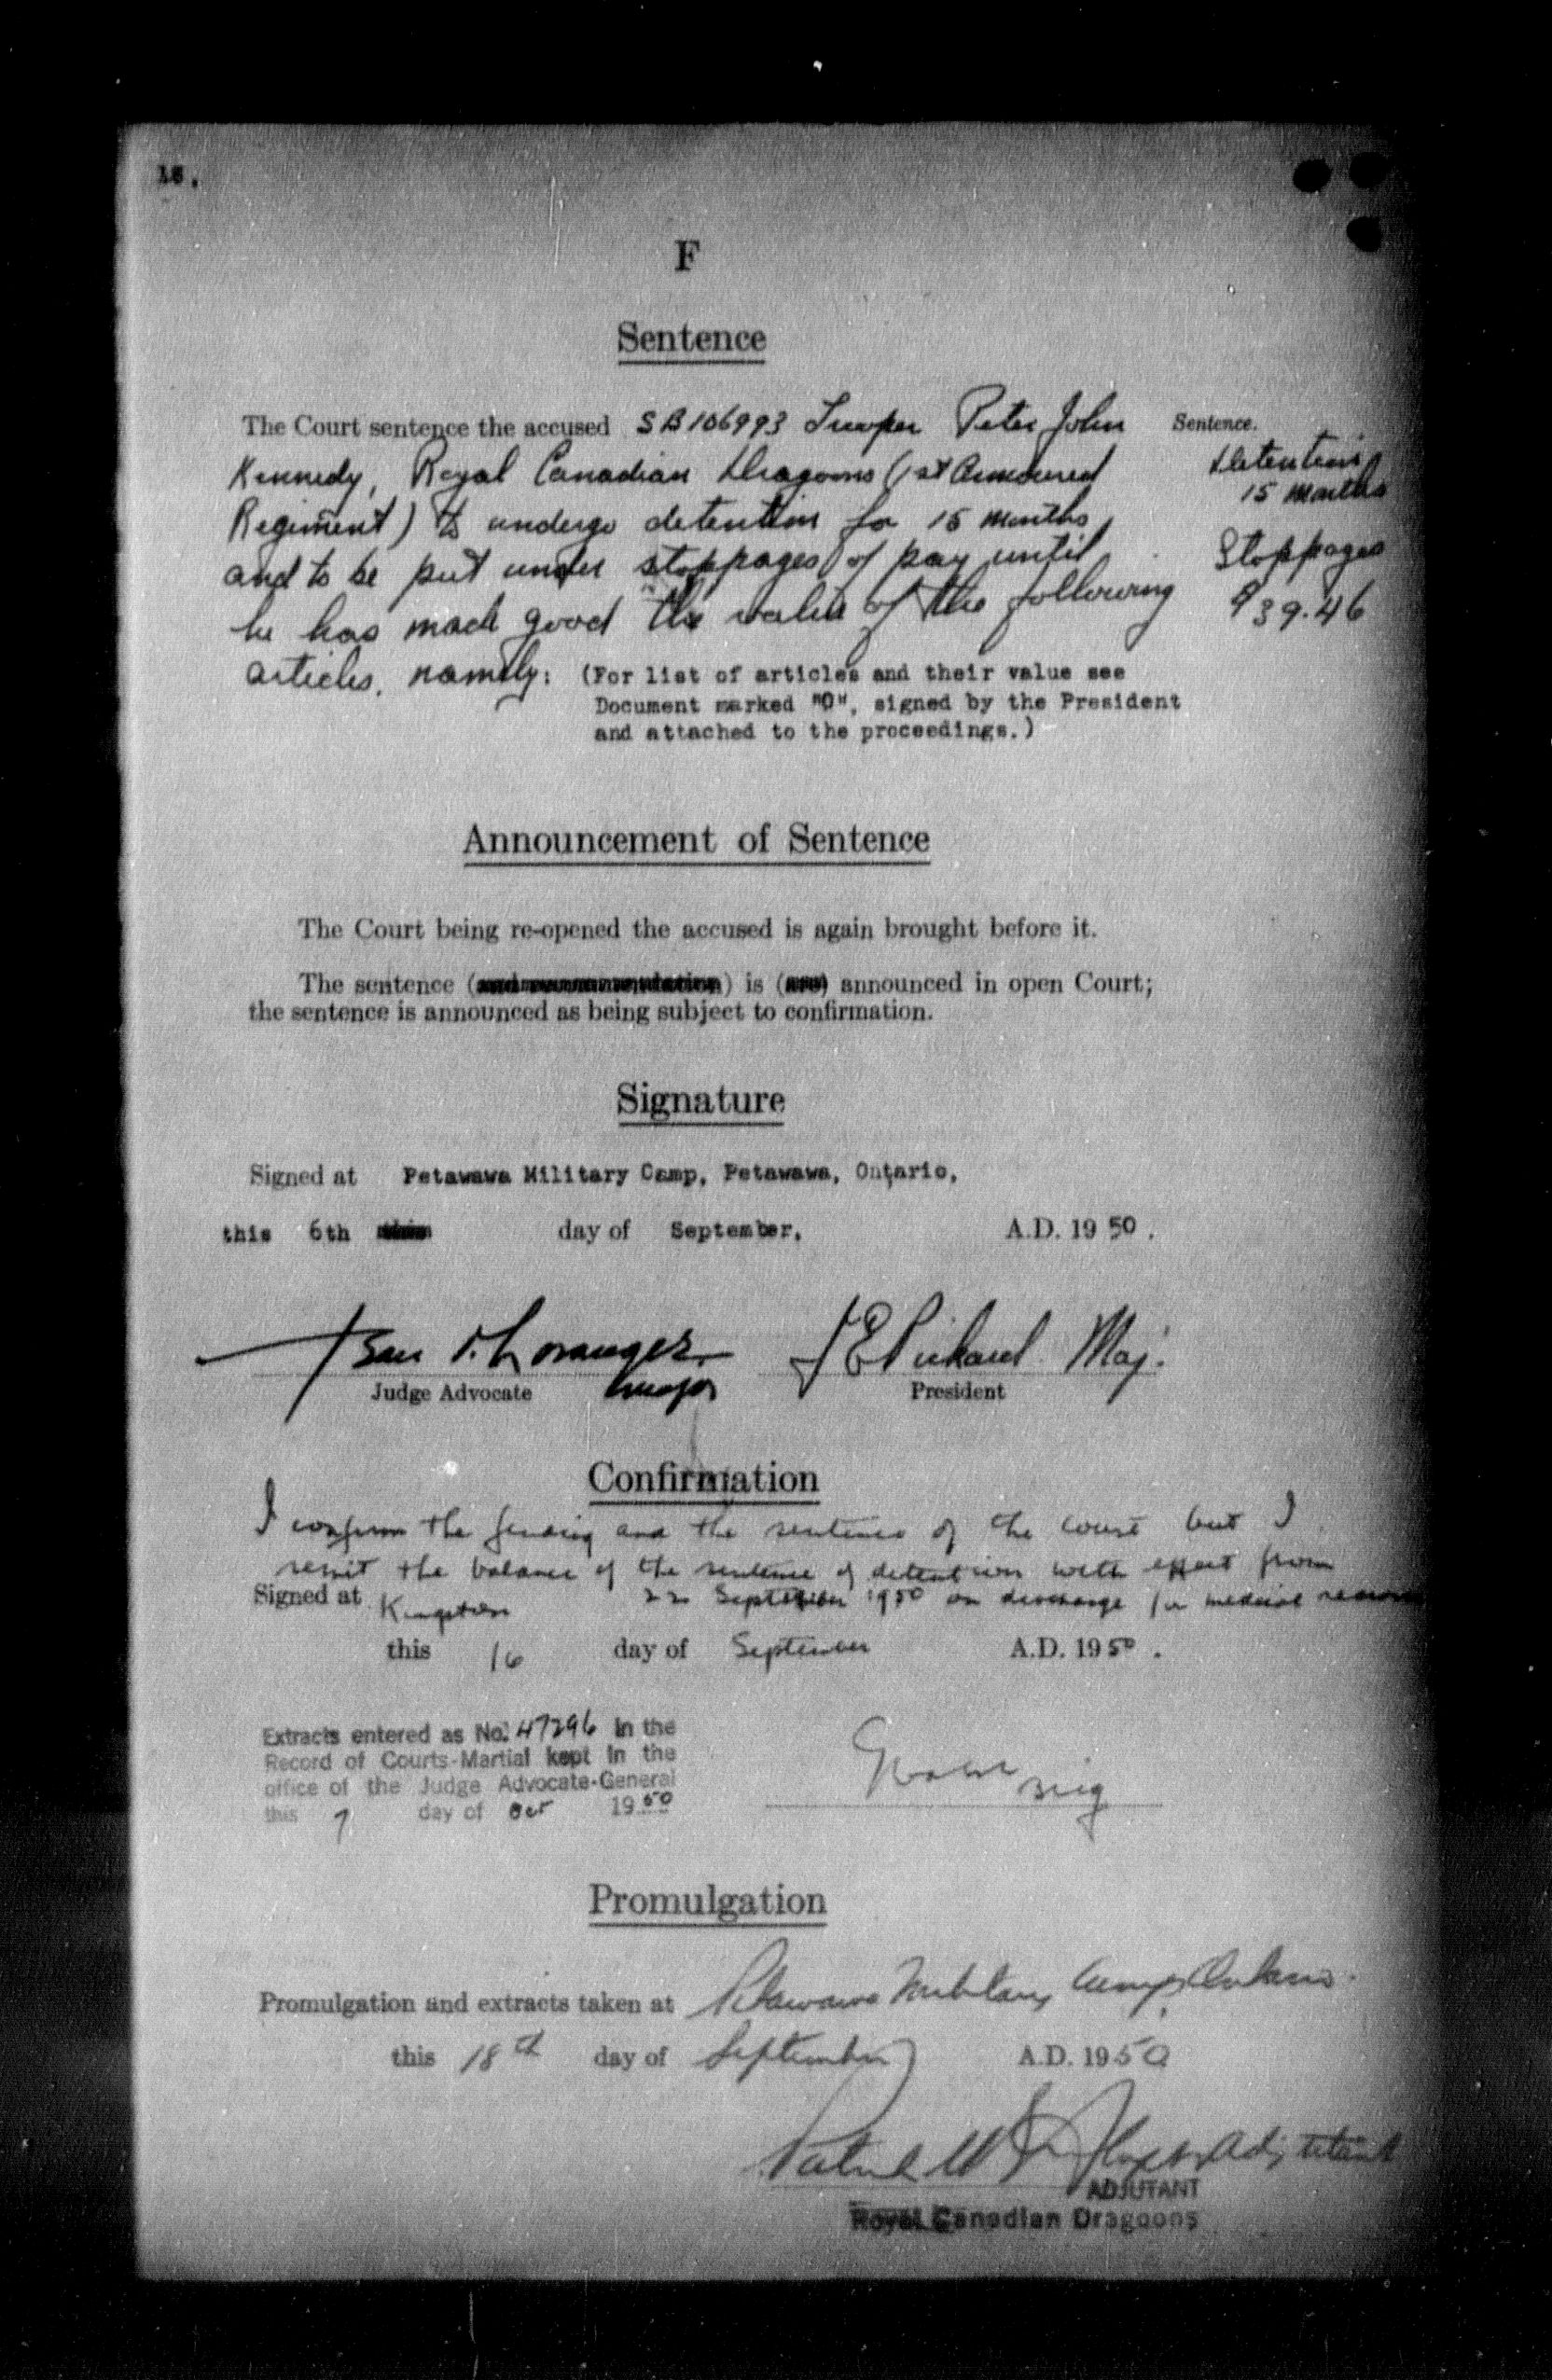 16.
F
Sentence
The Court sentence the accused SB106993 Trooper Peter John
Kennedy, Royal Canadian Dragoons (1st Armoured
Regiment) to undergo detention for 15 months
and to be put under stoppages of pay until
he has made good the value of the following
articles, namely: (For list of articles and their value see
Document marked "O", signed by the President
and attached to the proceedings.)
Sentence.
Detention
15 months
Stoppages
$39.46
Announcement of Sentence
The Court being re-opened the accused is again brought before it.
The sentence () is () announced in open Court;
the sentence is announced as being subject to confirmation.
Signature
Signed at Petawawa Military Camp, Petawawa, Ontario,
this 6th day of September, A.D. 1950.
Major J E Maj.
Judge Advocate President
Confirmation
I confirm the finding and the sentence of the court but I
remit the balance of the sentence of detention with effect from
22 September 1950 on discharge for medical reasons
Signed at Kingston
this 16 day of September A.D. 1950.
Extracts entered as No. 47296 in the
Record of Courts-Martial kept in the
office of the Judge Advocate-General
this 7 day of Oct 1950
Brig
Promulgation
Promulgation and extracts taken at Petawawa Military Camp, Ontario.
this 18th day of September A.D. 1950
Adjutant
ADJUTANT
Royal Canadian Dragoons